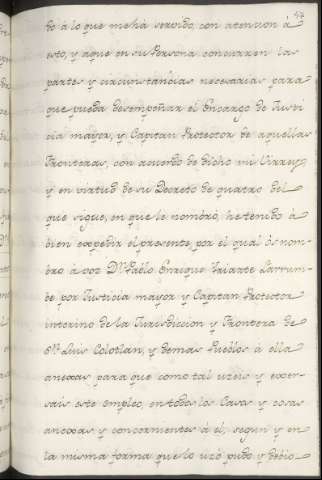 47
do à lo que me há servido, con atencion á
esto, y aque en su Persona concurren las
partes y circunstancias necesarias para
que pueda desempeñar el Encargo de Justi
cia mayor, y Capitan Protector de aquellas
Fronteras, con acuerdo de dicho mi Virrey,
y en virtud de su Decreto de quatro del
que sigue, en que le nombró, he tenido à
bien expedir el presente, por el qual òs nom-
bro à vos Dn. Pablo Enrique Iriarte Larrum-
be por Justicia mayor y Capitan Protector
interino de la Jurisdiccion y Frontera de
Sn. Luis Colotlan, y demas Pueblos à ella
anexas para que como tal useis y exer-
sais este empleo, en todos los Casos y cosas
anexas y concernientes à él, segun y en
la misma forma que lo usó pudo y debio